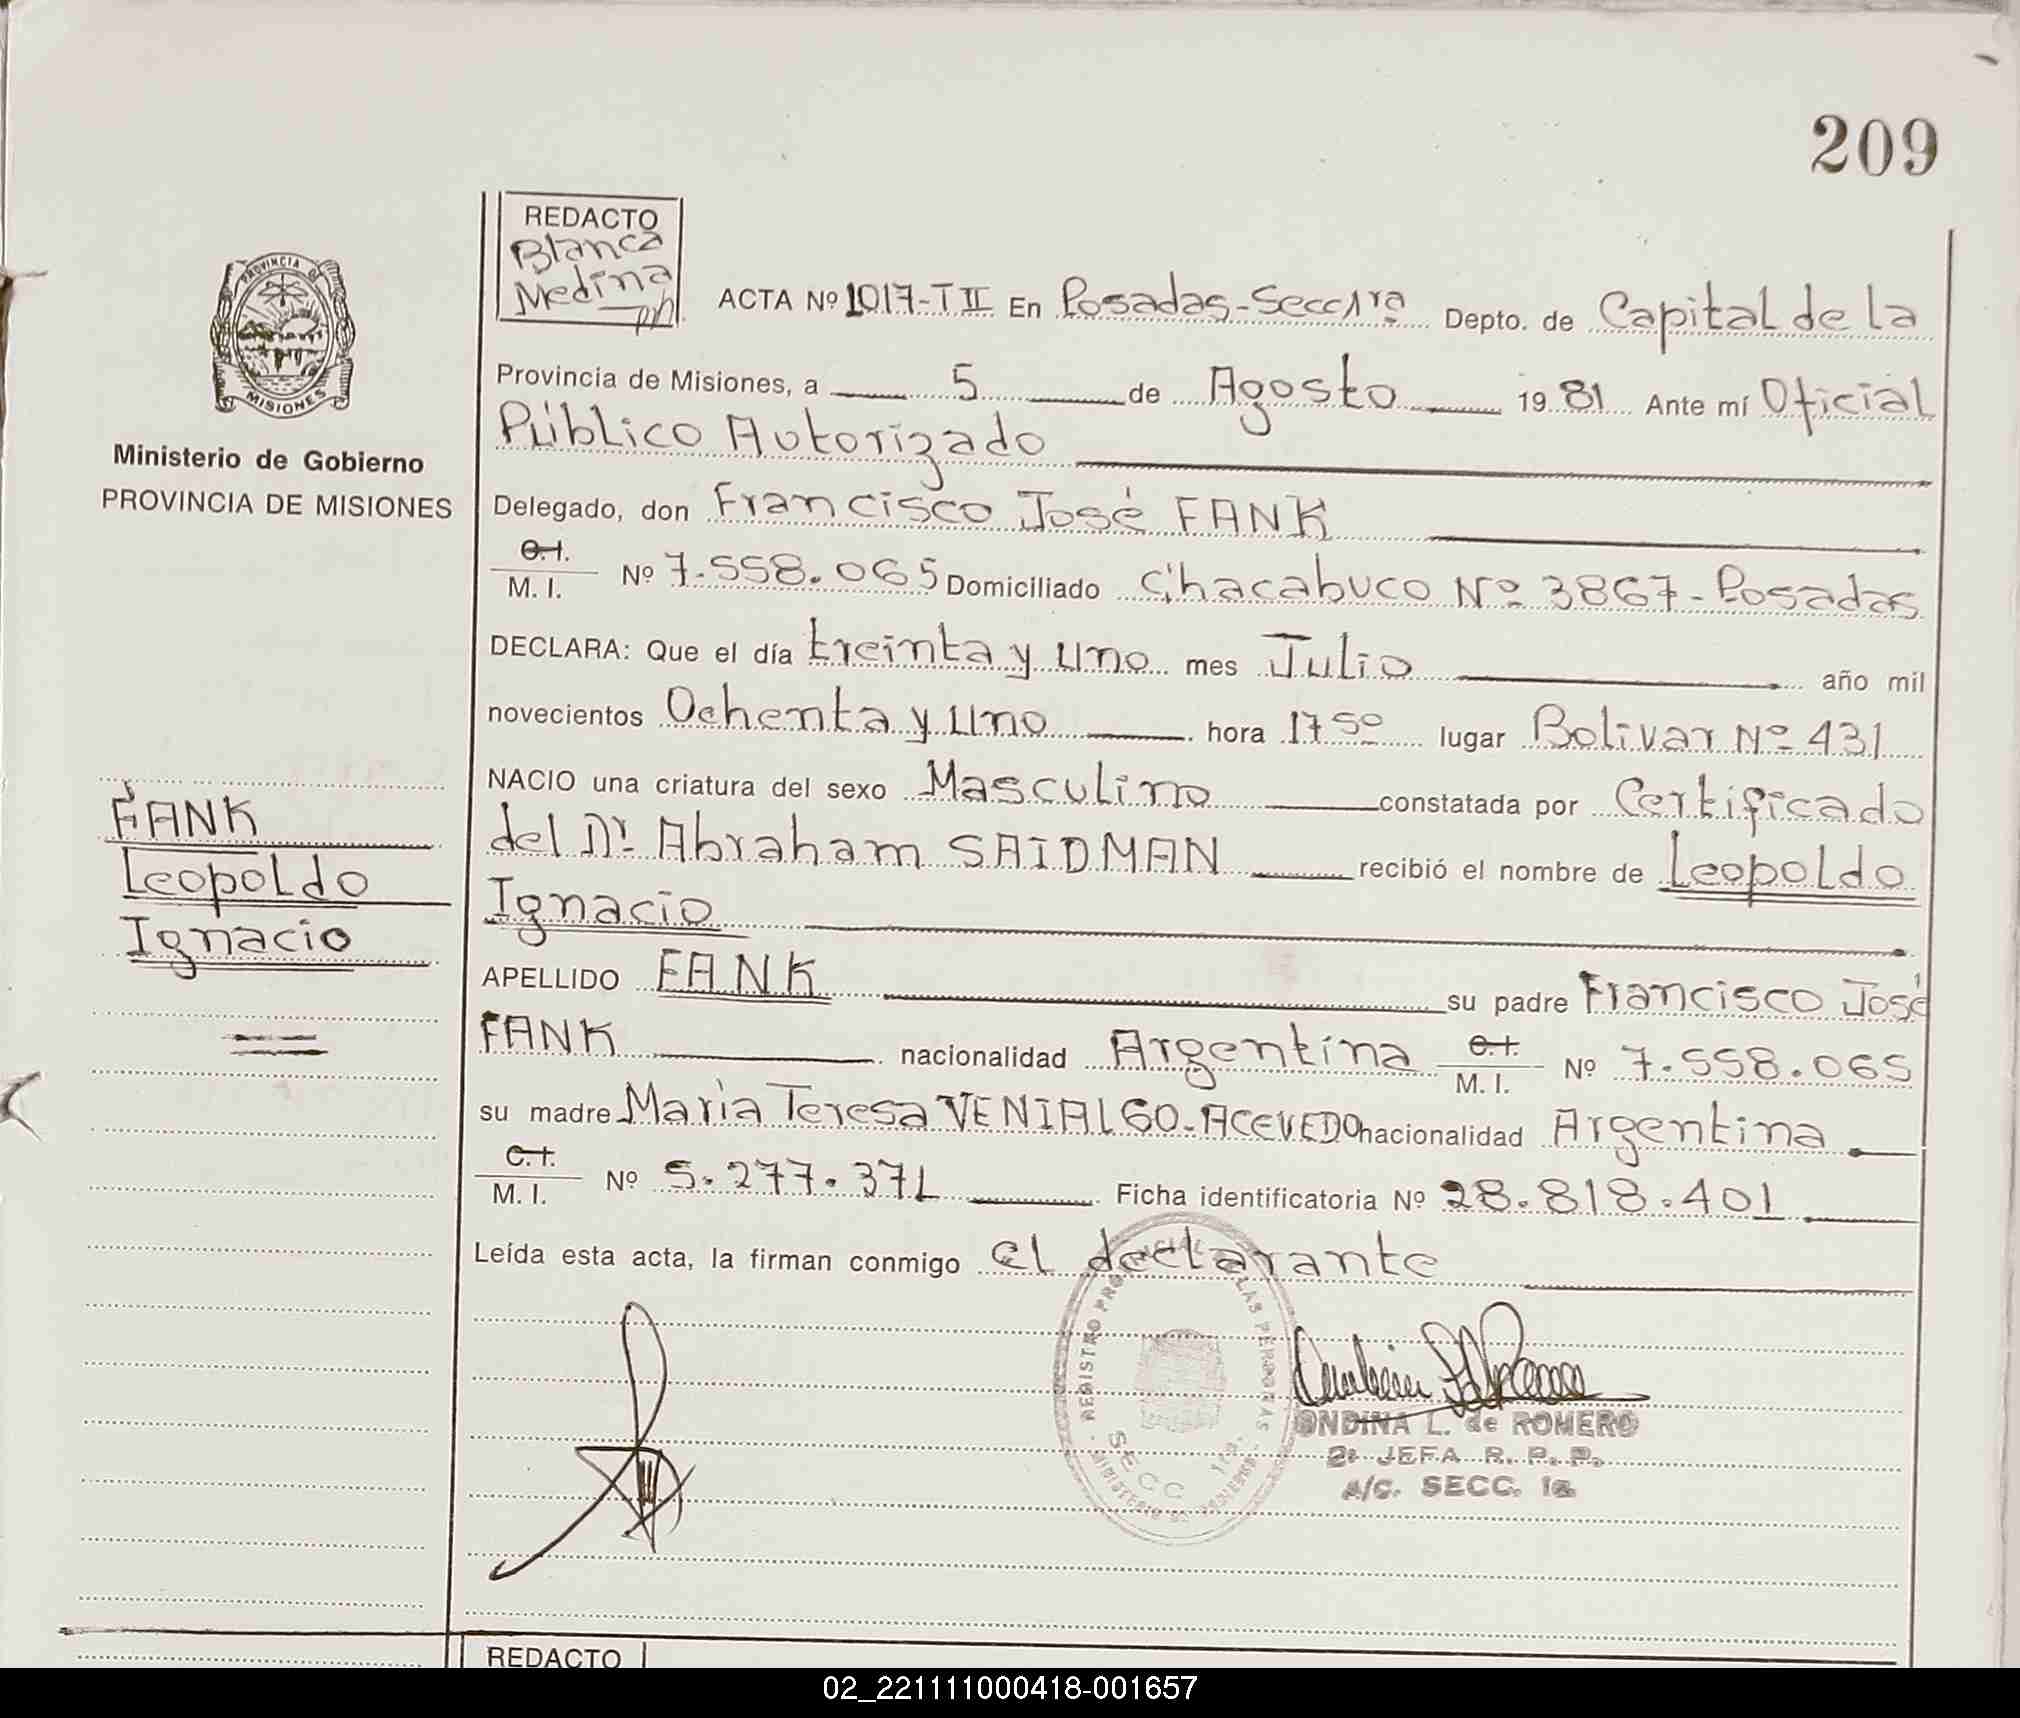 209
REDACTO
Blanca
Medina
PROVINCIA DE
MISIONES
Ministerio de Gobierno
PROVINCIA DE MISIONES
ACTA Nº 1017-T II En Posadas-Secc 1ra Depto. de Capital de la
Provincia de Misiones, a 5 de Agosto 1981 Ante mí Oficial
Público Autorizado
Delegado, don Francisco José FANK
C.I.
M. I. Nº 7.558.065 Domiciliado Chacabuco Nº 3867-Posadas
DECLARA: Que el día treinta y uno mes Julio año mil
novecientos Ochenta y uno hora 17 50 lugar Bolivar Nº 431
NACIO una criatura del sexo Masculino constatada por Certificado
del Dr. Abraham SAIDMAN recibió el nombre de Leopoldo
Ignacio
APELLIDO FANK su padre Francisco José
FANK nacionalidad Argentina C.I. M. I. Nº 7.558.065
su madre Maria Teresa VENIALGO-ACEVEDO nacionalidad Argentina
C.I.
M. I. Nº 5.277.371 Ficha identificatoria Nº 28.818.401
Leída esta acta, la firman conmigo el declarante
FANK
Leopoldo
Ignacio
REGISTRO PROVINCIAL DE LAS PERSONAS
SECC 1ra.
MINISTERIO DE GOBIERNO
ONDINA L. de ROMERO
2ª JEFA R. P. P.
A/C. SECC. 1a
REDACTO
02_221111000418-001657